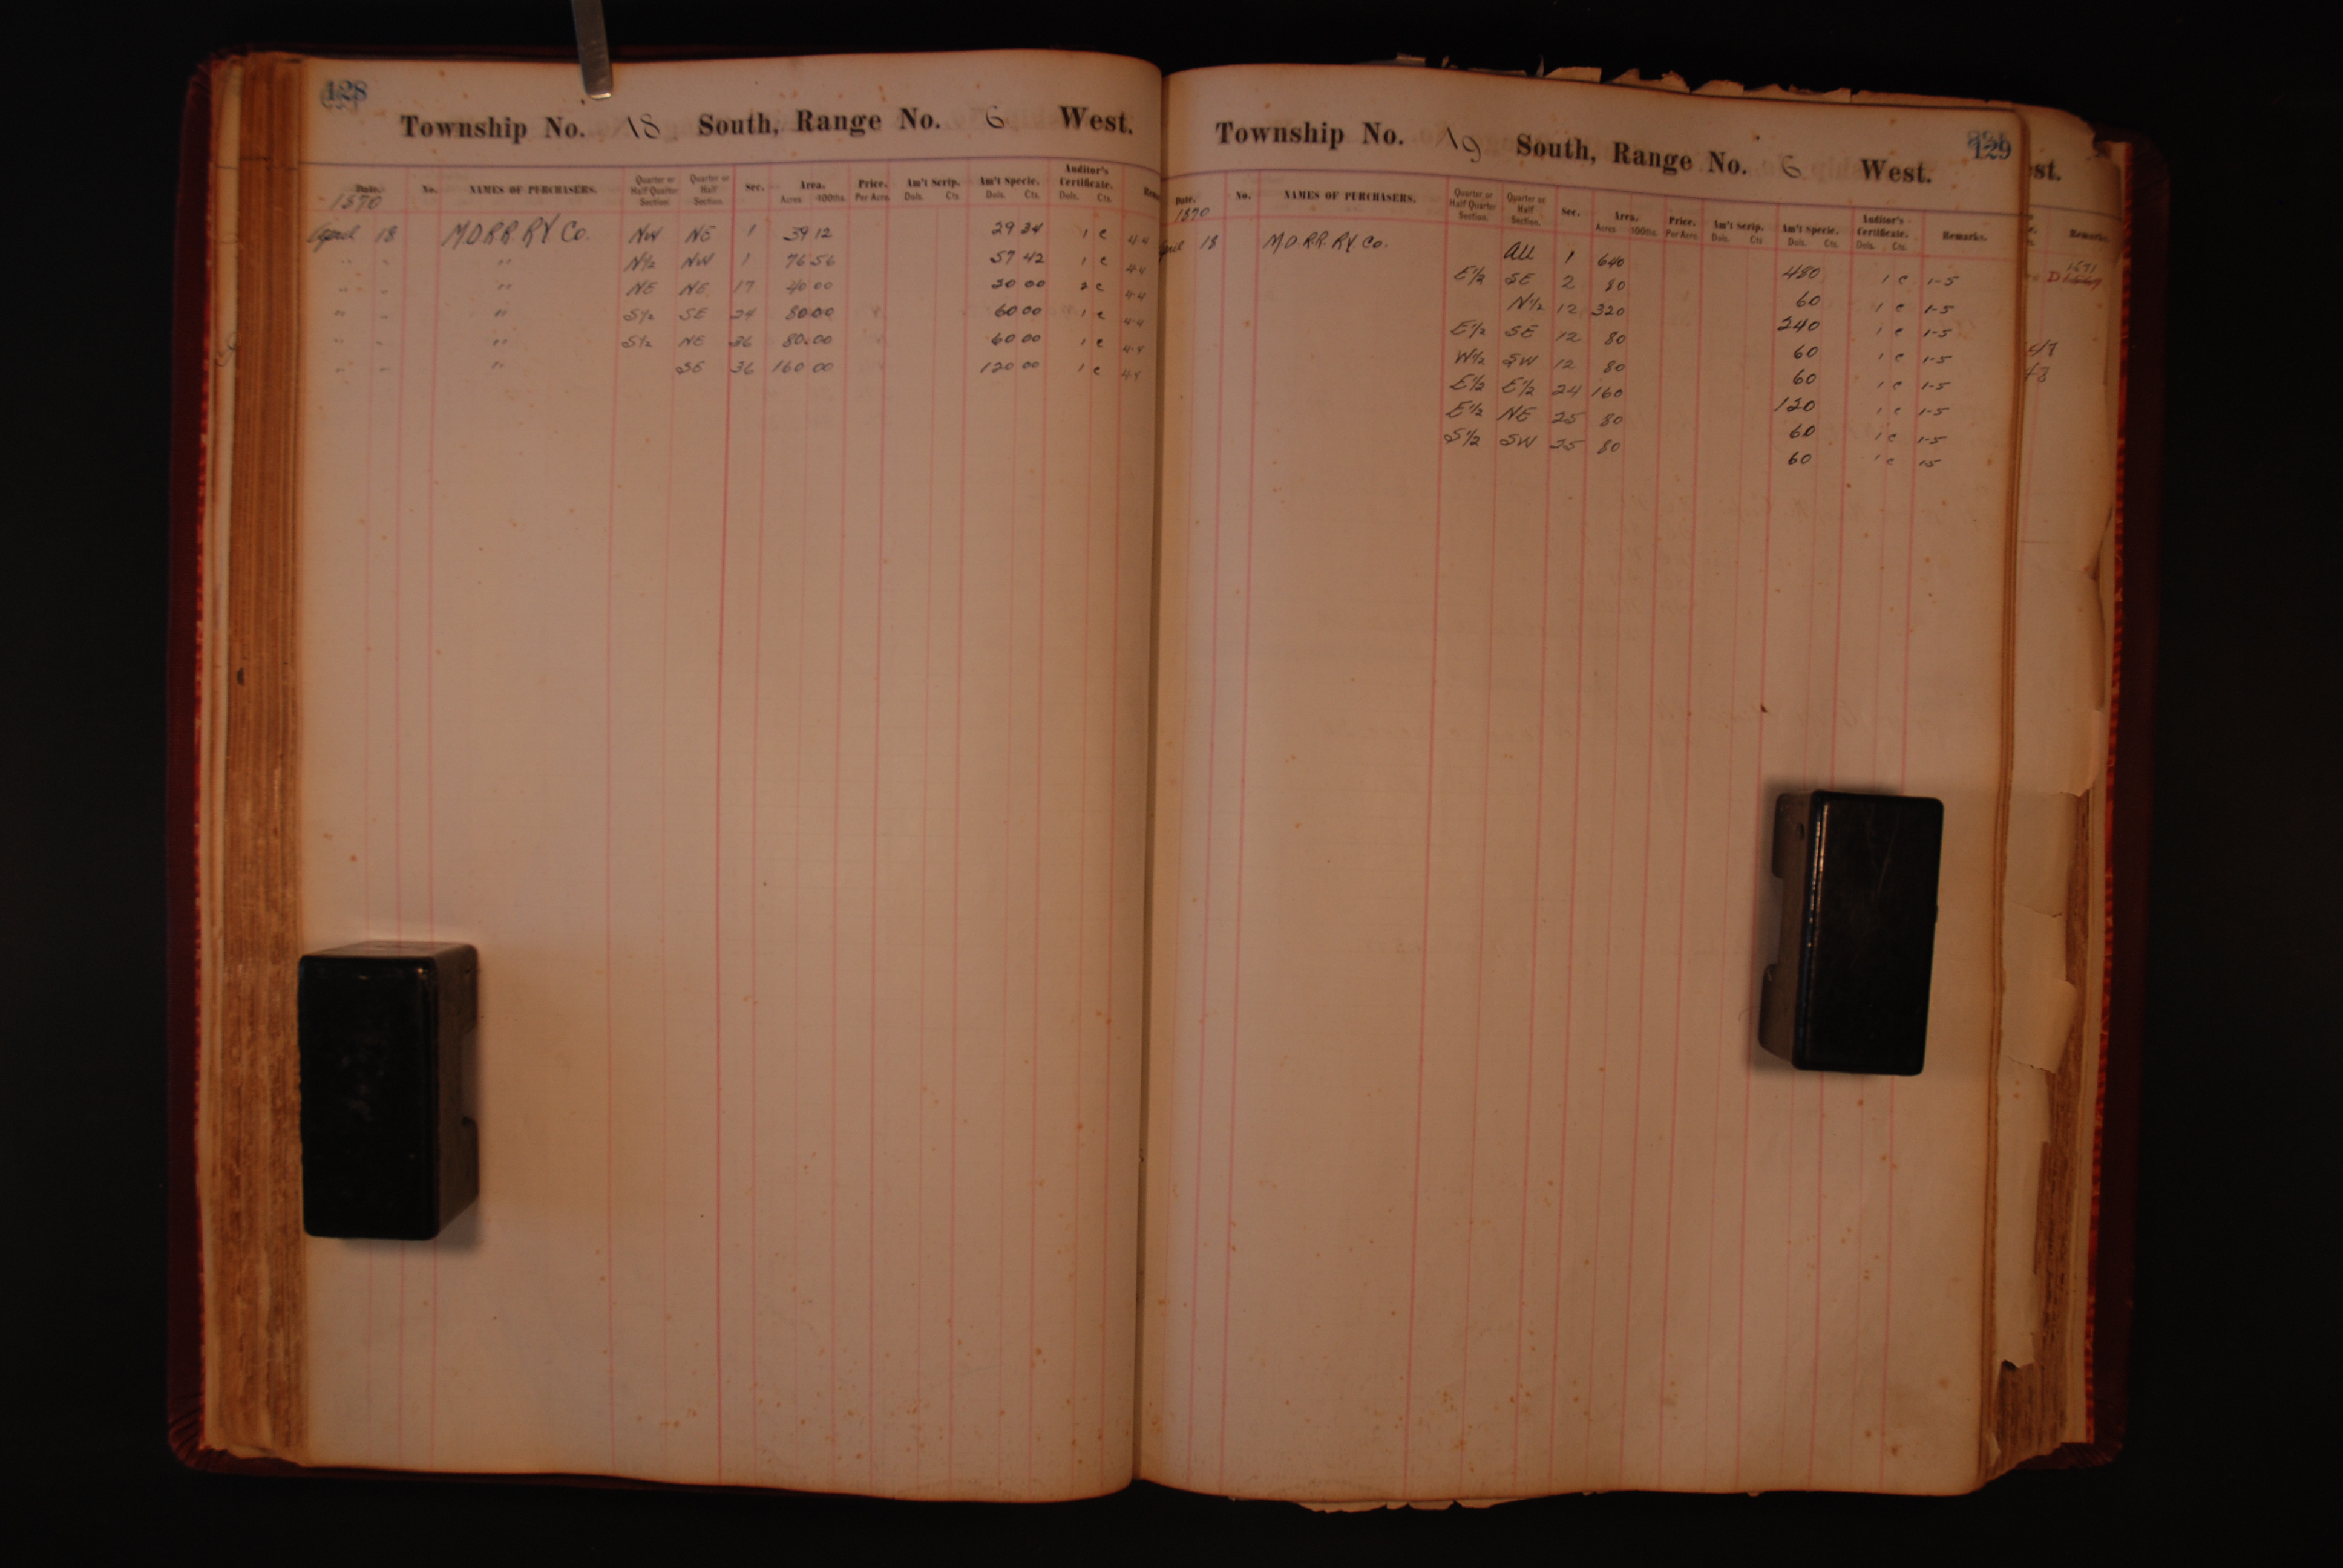 128
Township No. 18 South, Range No. 6 West.
Date. No. NAMES OF PURCHASERS. Quarter or Half Quarter Section. Quarter or Half Section. Sec. Area. Acres 100ths. Price. Per Acre. Am't Scrip. Dols. Cts. Am't Specie. Dols. Cts. Auditor's Certificate. Dols. Cts.
1870
April 18 M.O.R.R. RY Co. NW NE 1 39 12 29 34 1 c 4-4
" " " N½ NW 1 76 56 57 42 1 c 4-4
" " " NE NE 17 40 00 20 00 2 c 4-4
" " " S½ SE 24 80.00 60 00 1 c 4-4
" " " S½ NE 36 80.00 60 00 1 c 4-4
" " " SE 36 160 00 120 00 1 c 4-4
129
Township No. 19 South, Range No. 6 West.
Date. No. NAMES OF PURCHASERS. Quarter or Half Quarter Section. Quarter or Half Section. Sec. Area. Acres 100ths. Price. Per Acre. Am't Scrip. Dols. Cts. Am't Specie. Dols. Cts. Auditor's Certificate. Dols. Cts. Remarks.
1870
April 18 M.O.R.R. RY Co. All 1 640 480 1 c 1-5
E½ SE 2 80 60 1 c 1-5
N½ 12 320 240 1 c 1-5
E½ SE 12 80 60 1 c 1-5
W½ SW 12 80 60 1 c 1-5
E½ E½ 24 160 120 1 c 1-5
E½ NE 25 80 60 1 c 1-5
S½ SW 25 80 60 1 c 15
st.
Remarks.
1571